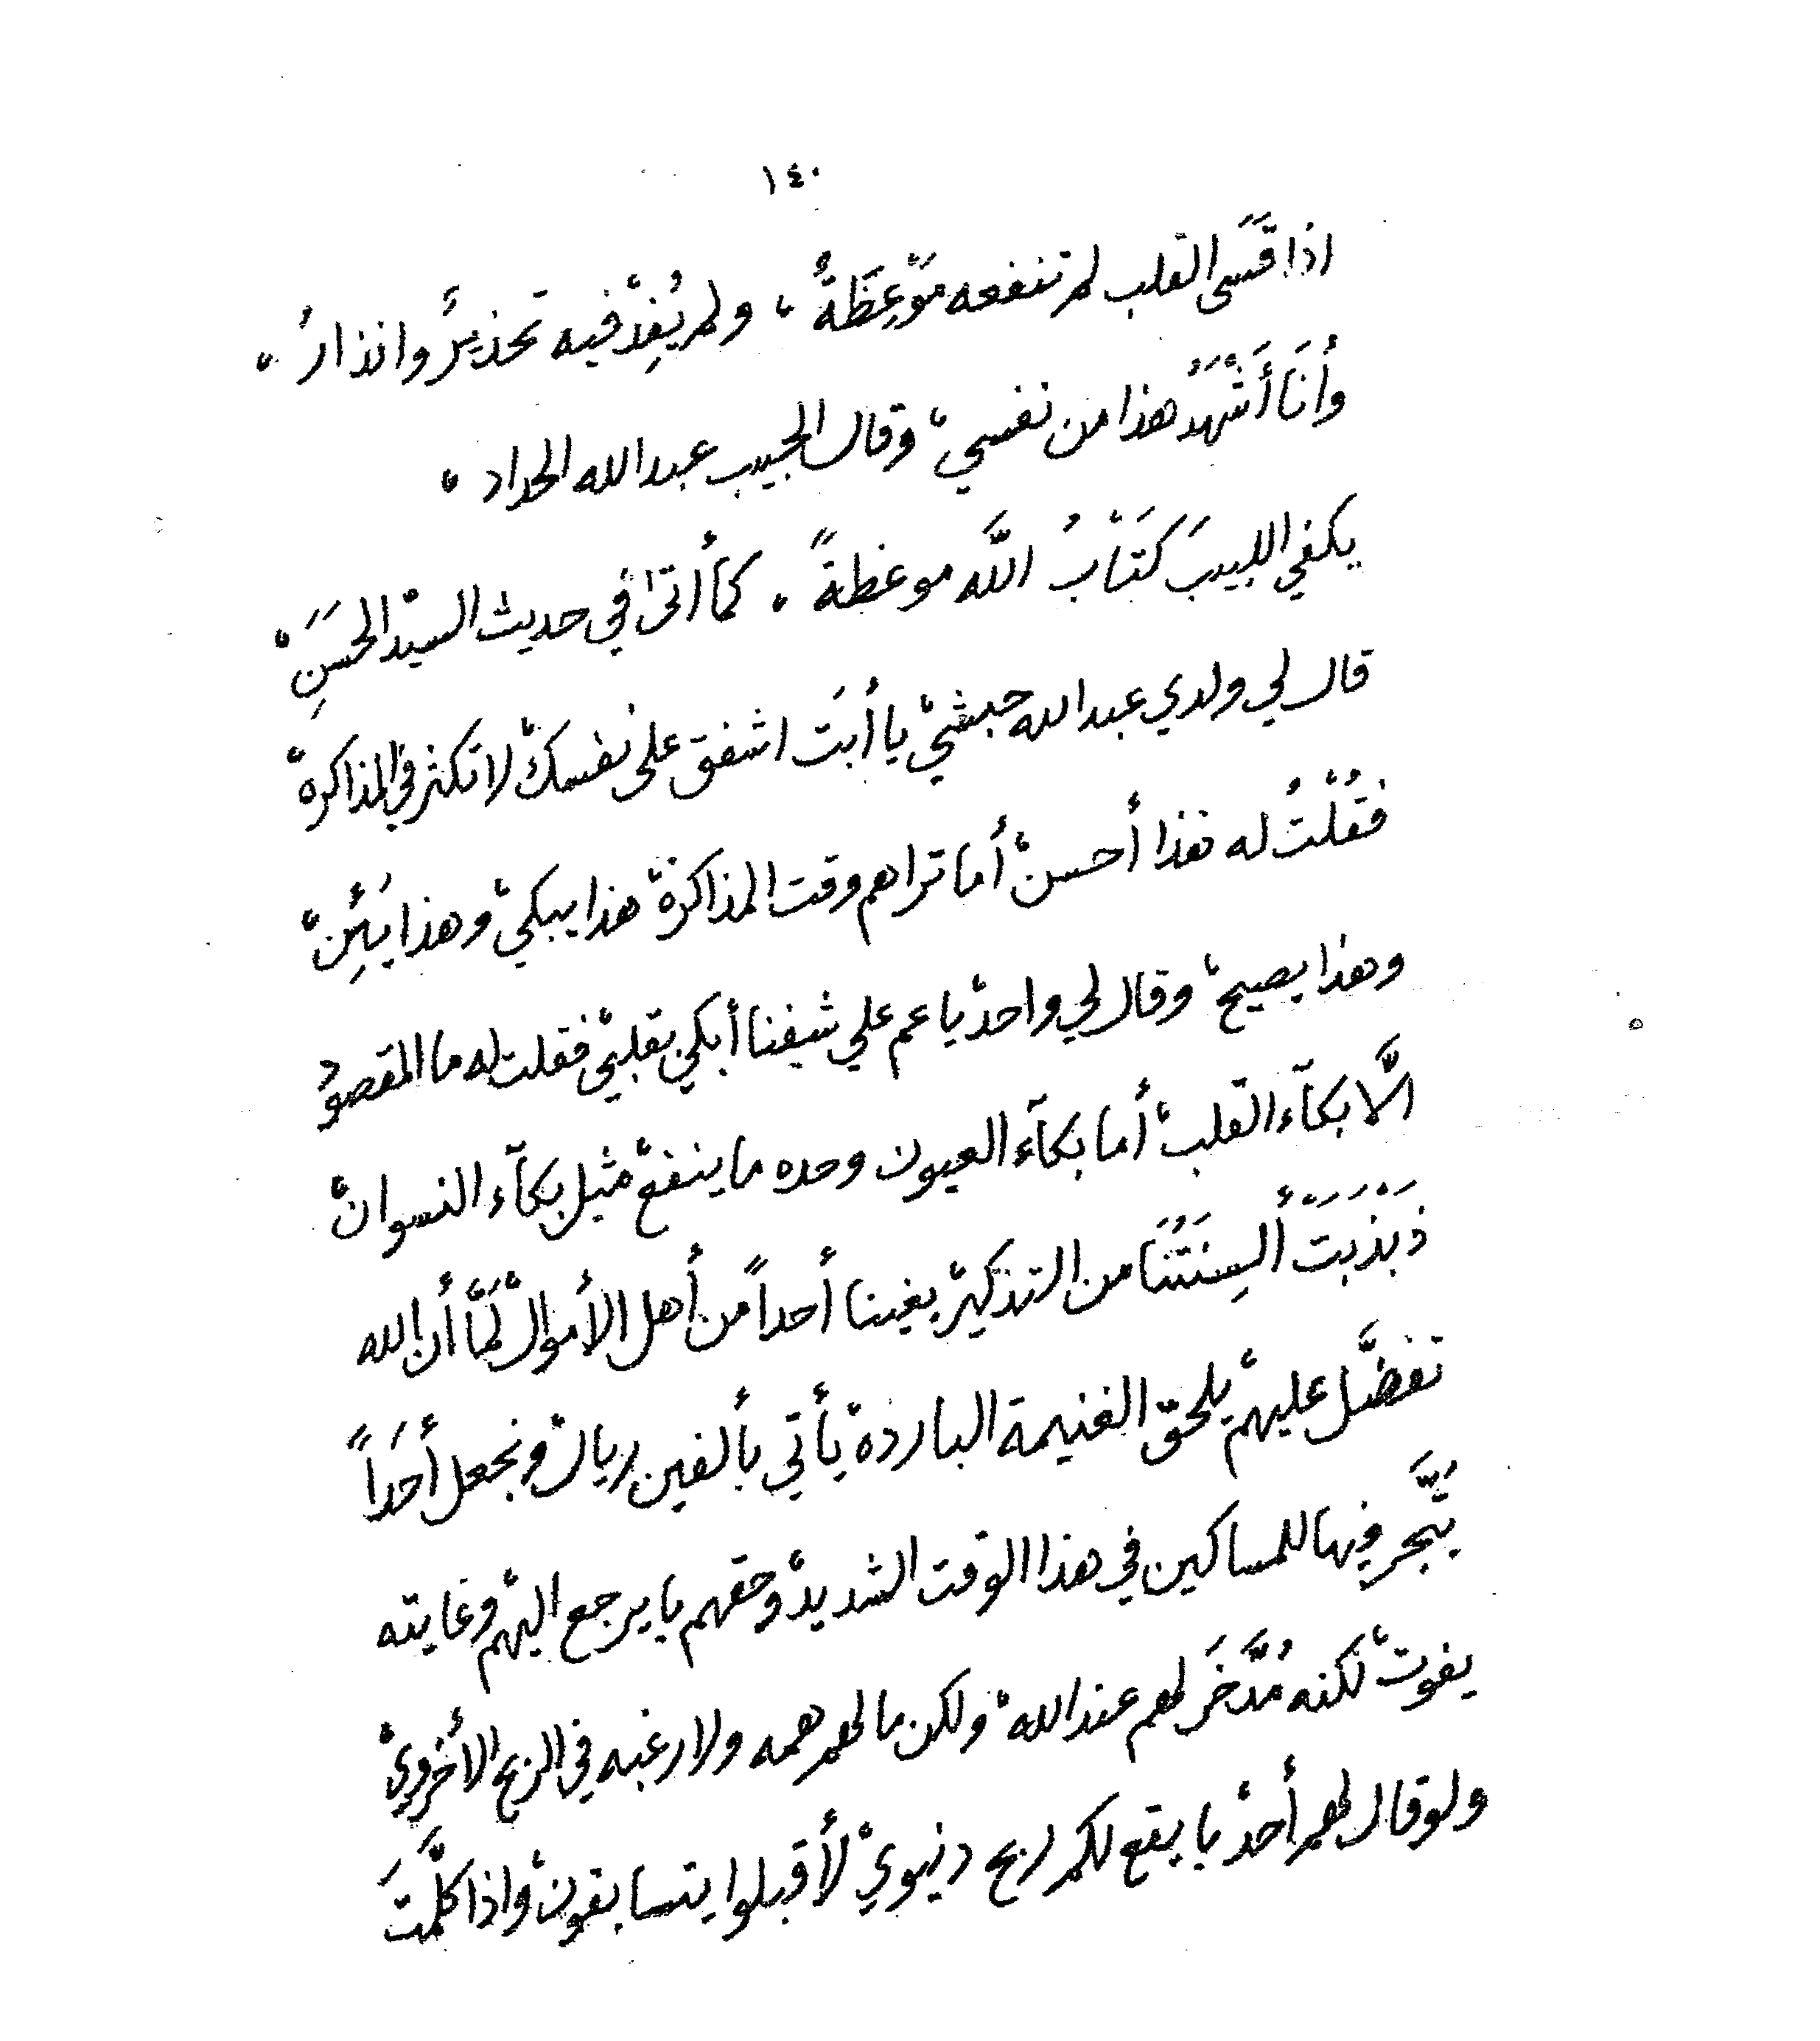 ١٤٠
اذا قَسَى القلب لم تنفعه مَوْعِظَةٌ ، ولم يُفِدْ فيه تحذيرٌ وانذارُ ،
وأَنَا أَشْهَدُ هذا من نفسي ، وقال الحبيب عبد الله الحداد ،
يكفي اللبيبَ كَتَابُ اللَّه موعظةً ، كما أتى في حديث السيد الحَسَنِ ،
قال لي ولدي عبد الله حبشي ، يا أَبَت اشفق على نفسك ، لا تكثر في المذاكرة ،
فَقُلْتُ له هذا أحسن ، أما تراهم وقت المذاكرة ، هذا يبكي ، وهذا يُئِن ،
وهذا يصيح ، وقال لي واحد ، يا عم علي شيفنا أبكي بقلبي ، فقلت له ما المقصودُ
الَّا بكآء القلب ، أما بكآء العيون وحده ما ينفع ، مثيل بكآء النسوان ،
ذَبْذَبَتْ أَلسِنَتُنَا من التذكير ، بغينا أحداً من أهل الأموال ، لَمَّا أن الله
تفضَّل عليهم ، يلحق الغنيمة الباردة ، يأتي بألفين ريال ، ونجعل أحَداً
يُتَّجر فيها للمساكين في هذا الوقت الشديد ، وحقهم با يرجع اليهم ، وغايته
يفوت ، لكنه مُدَّخَر لهم عند الله ، ولكن ما لهم همه ولا رغبه في الربح الأخروي ،
ولو قال لهم أحد ، با يقع لكم ربح دنيوي ، لأقبلوا يتسابقون ، واذا كلَّمْتَ